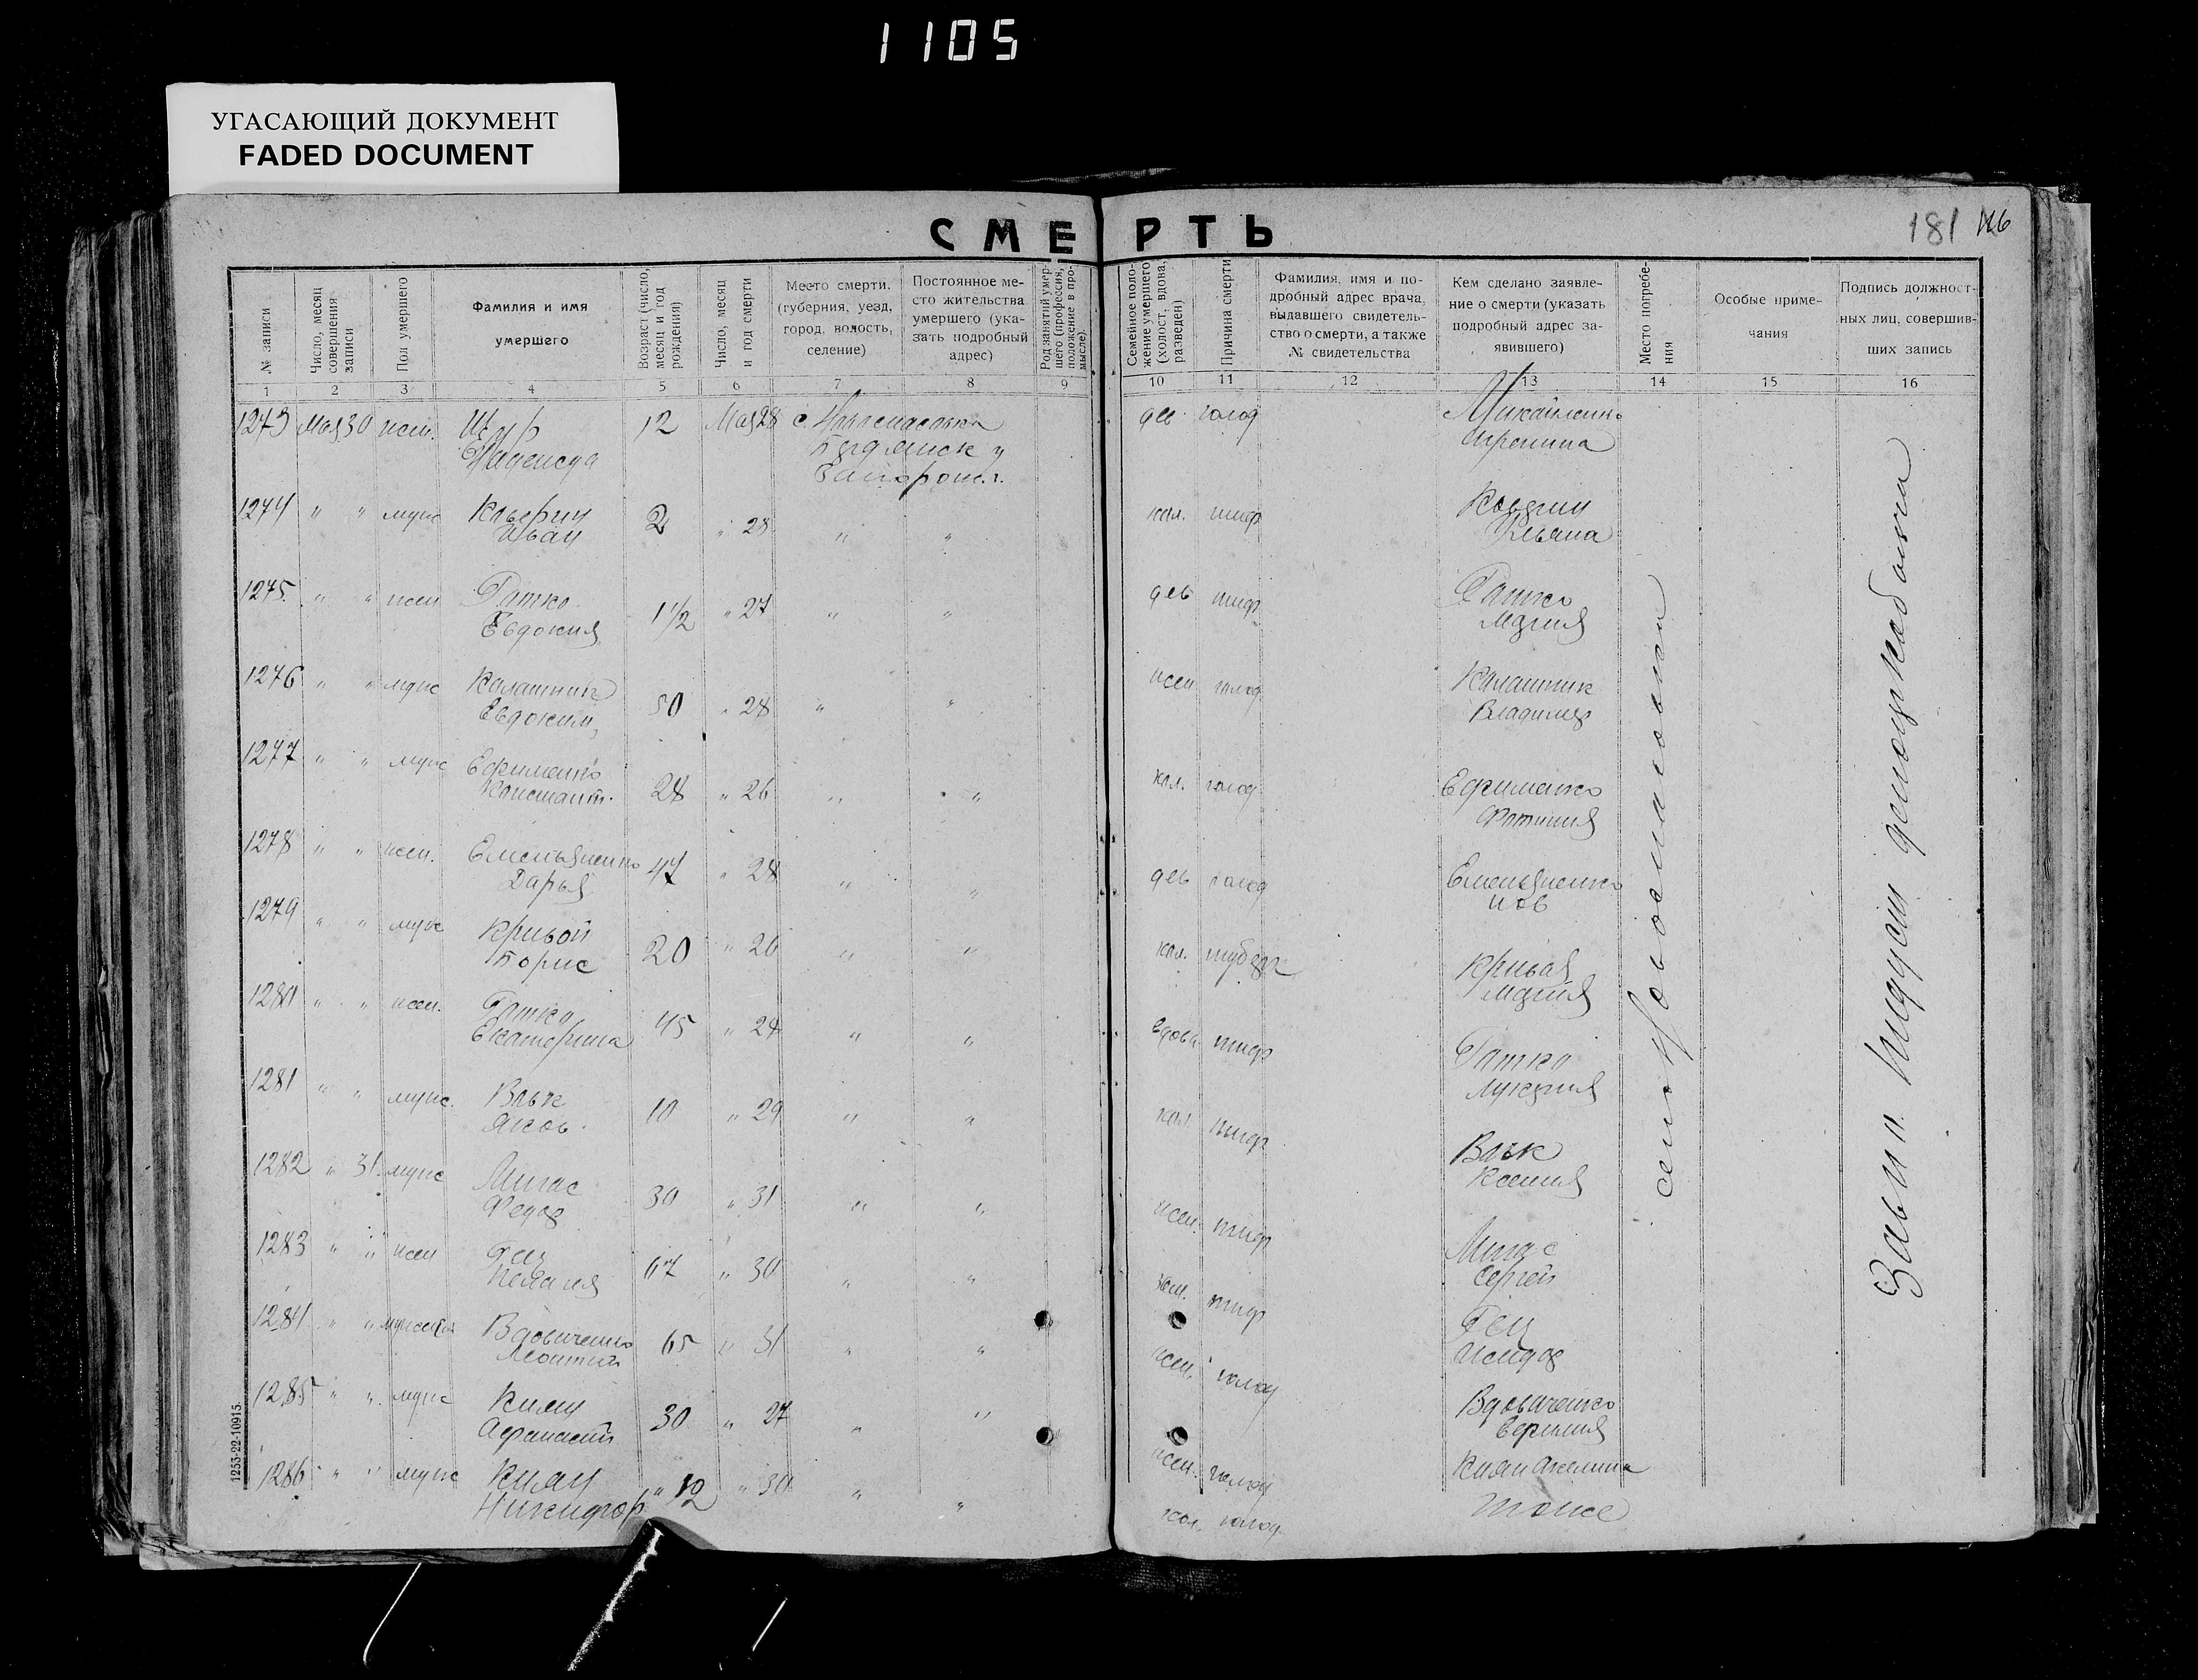 1105
УГАСАЮЩИЙ ДОКУМЕНТ
FADED DOCUMENT
СМЕРТЬ
181
№ записи
Число, месяц совершения записи
Пол умершего
Фамилия и имя умершего
Возраст (число, месяц и год рождения)
Число, месяц и год смерти
Место смерти. (губерния, уезд, город, волость, селение)
Постоянное место жительства умершего (указать подробный адрес)
Род занятий умершего (профессия, положение в промысле).
Семейное положение умершего (холост, вдова, разведен)
Причина смерти
Фамилия, имя и подробный адрес врача, выдавшего свидетельство о смерти, а также № свидетельства
Кем сделано заявление о смерти (указать подробный адрес заявившего)
Место погребения
Особые примечания
Подпись должностных лиц, совершивших запись
1 2 3 4 5 6 7 8 9 10 11 12 13 14 15 16
1273 Мая 30 жен. Надежда 12 Мая 28 дев голод
1274 " " муж Иван 2 " 28 " " хол. тиф
1275 " " жен Гатко Евдокия 1 1/2 " 27 " " дев тиф Гатко Мария
1276 " " муж Калашник Евдоким 50 " 28 " " жен голод Калашник Владимир
1277 " " муж Ефименко Констант. 28 " 26 " " хол. голод Ефименко Фотиния
1278 " " жен. Емельяненко Дарья 47 " 28 " " дев голод Емельяненко
1279 " " муж Кривой Борис 20 " 26 " " хол. туберк Кривая Мария
1280 " " жен. Гатко Екатерина 45 " 24 " " вдова тиф Гатко Лукерия
1281 " " муж. Вовк Яков 10 " 29 " " хол тиф Вовк Ксения
1282 " 31 муж Мигас Федор 30 " 31 " " жен. тиф Мигас Сергей
1283 " " жен Гец Пелагия 67 " 30 " " зам. тиф Гец Исидор
1284 " " мужской Вдовиченко Леонтий 65 " 31 " " жен. голод Вдовиченко
1285 " " муж Киян Афанасий 30 " 27 " " жен. голод Киян Акелина
1286 " " муж Киян Никифор " 12 " 30 " " хол. голод тоже
село Новоспасовка
1253-22-10915.